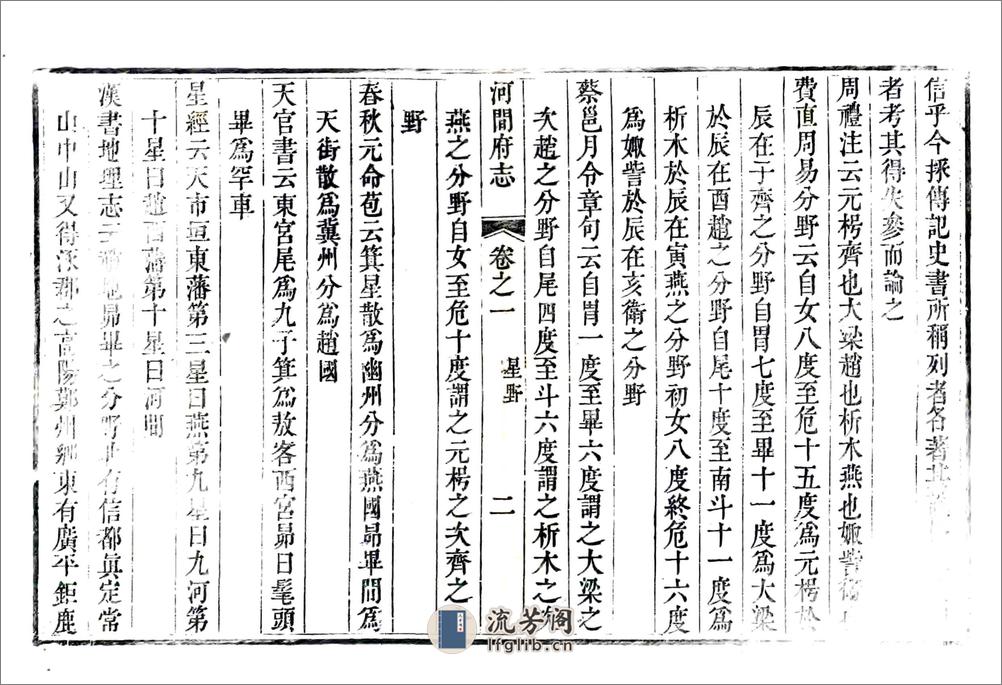 信乎今採傳記史書所稱列者各著其
者考其得失參而論之
周禮注云元枵齊也大梁趙也析木燕也娵訾衛也
費直周易分野云自女八度至危十五度爲元枵於
辰在子齊之分野自胃七度至畢十一度爲大梁
於辰在酉趙之分野自尾十度至南斗十一度爲
析木於辰在寅燕之分野初女八度終危十六度
爲娵訾於辰在亥衛之分野
蔡邕月令章句云自胃一度至畢六度謂之大梁之
次趙之分野自尾四度至斗六度謂之析木之次
燕之分野自女至危十度謂之元枵之次齊之分
野
河間府志
卷之一
星野
二
春秋元命苞云箕星散爲幽州分爲燕國昴畢間爲
天街散爲冀州分爲趙國
天官書云東宮尾爲九子箕爲敖客西宮昴曰髦頭
畢爲罕車
星經云天市垣東藩第三星曰燕第九星曰九河第
十星曰趙西藩第十星曰河間
漢書地理志云趙地昴畢之分野也有信都眞定常
山中山又得涿郡之高陽鄚州鄉東有廣平鉅鹿
流芳阁
lfglib.cn